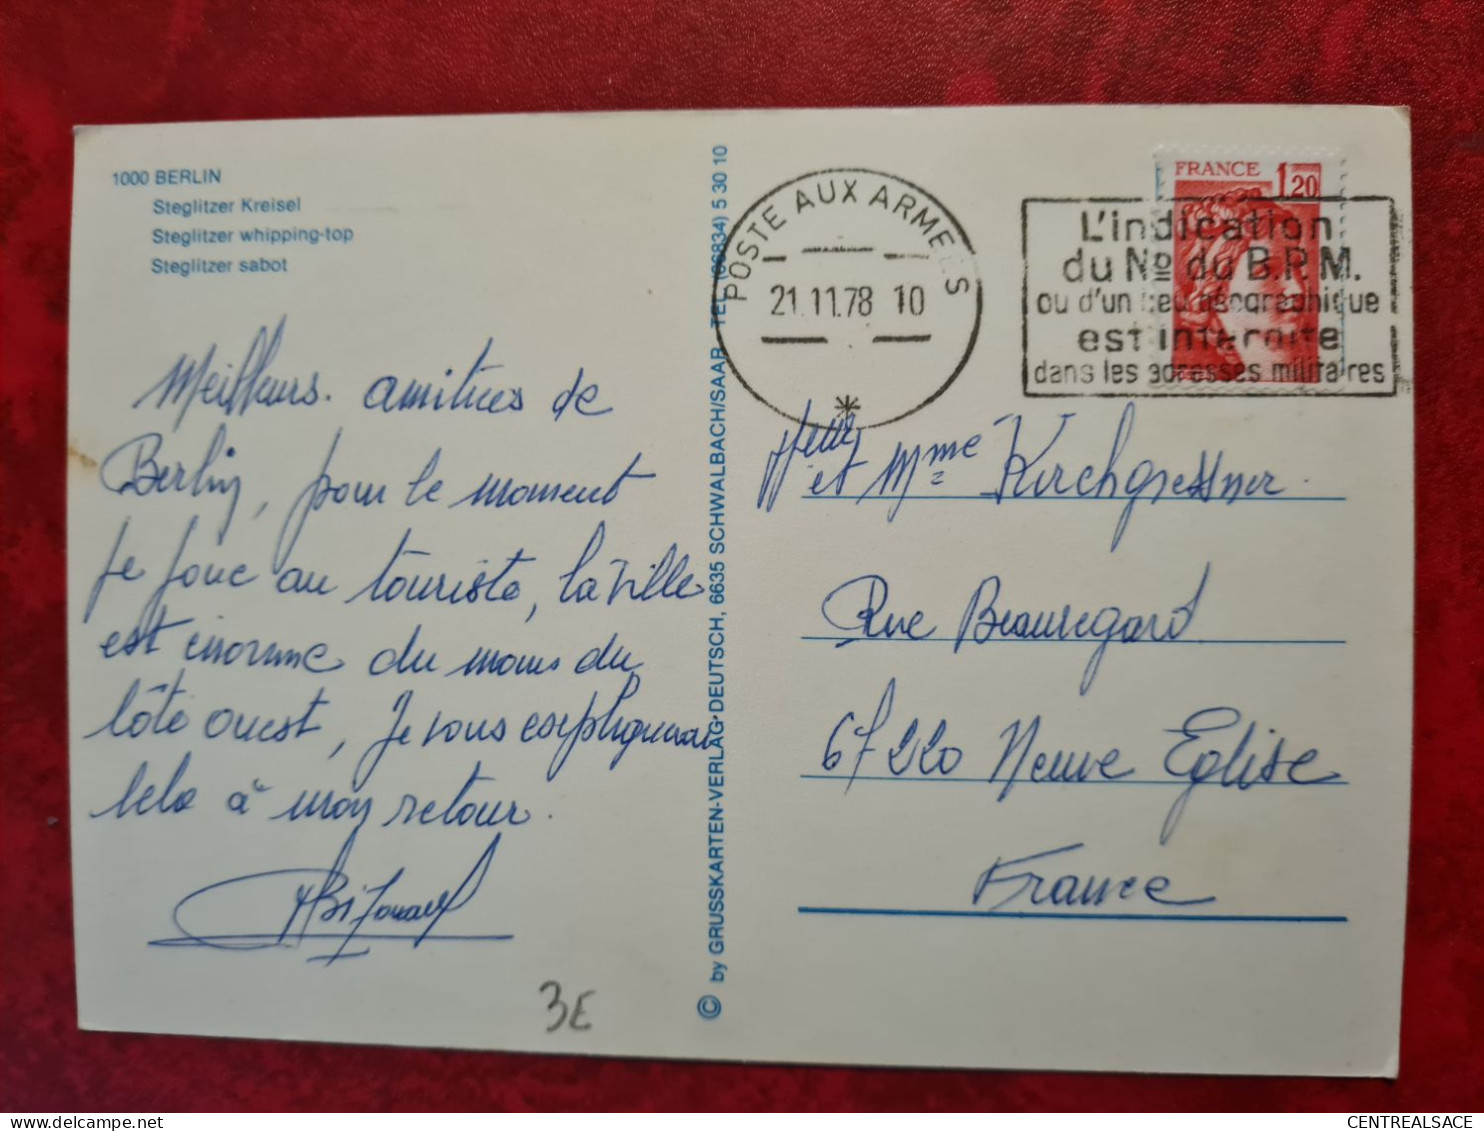 1000 BERLIN
Steglitzer Kreisel
Steglitzer whipping-top
Steglitzer sabot
Meilleurs amitiées de
Berlin, pour le moment
je joue au touriste, la ville
est énorme du moins du
côté ouest, je vous expliquerai
cela à mon retour.
3E
© by GRUSSKARTEN-VERLAG-DEUTSCH, 6635 SCHWALBACH/SAAR TEL. (06834) 5 30 10
POSTE AUX ARMEES
21.11.78 10
FRANCE 1,20
L'indication
du No du B.P.M.
ou d'un lieu géographique
est interdite
dans les adresses militaires
et Mme Kirchgessner
Rue Beauregard
67220 Neuve Eglise
France
CENTREALSACE